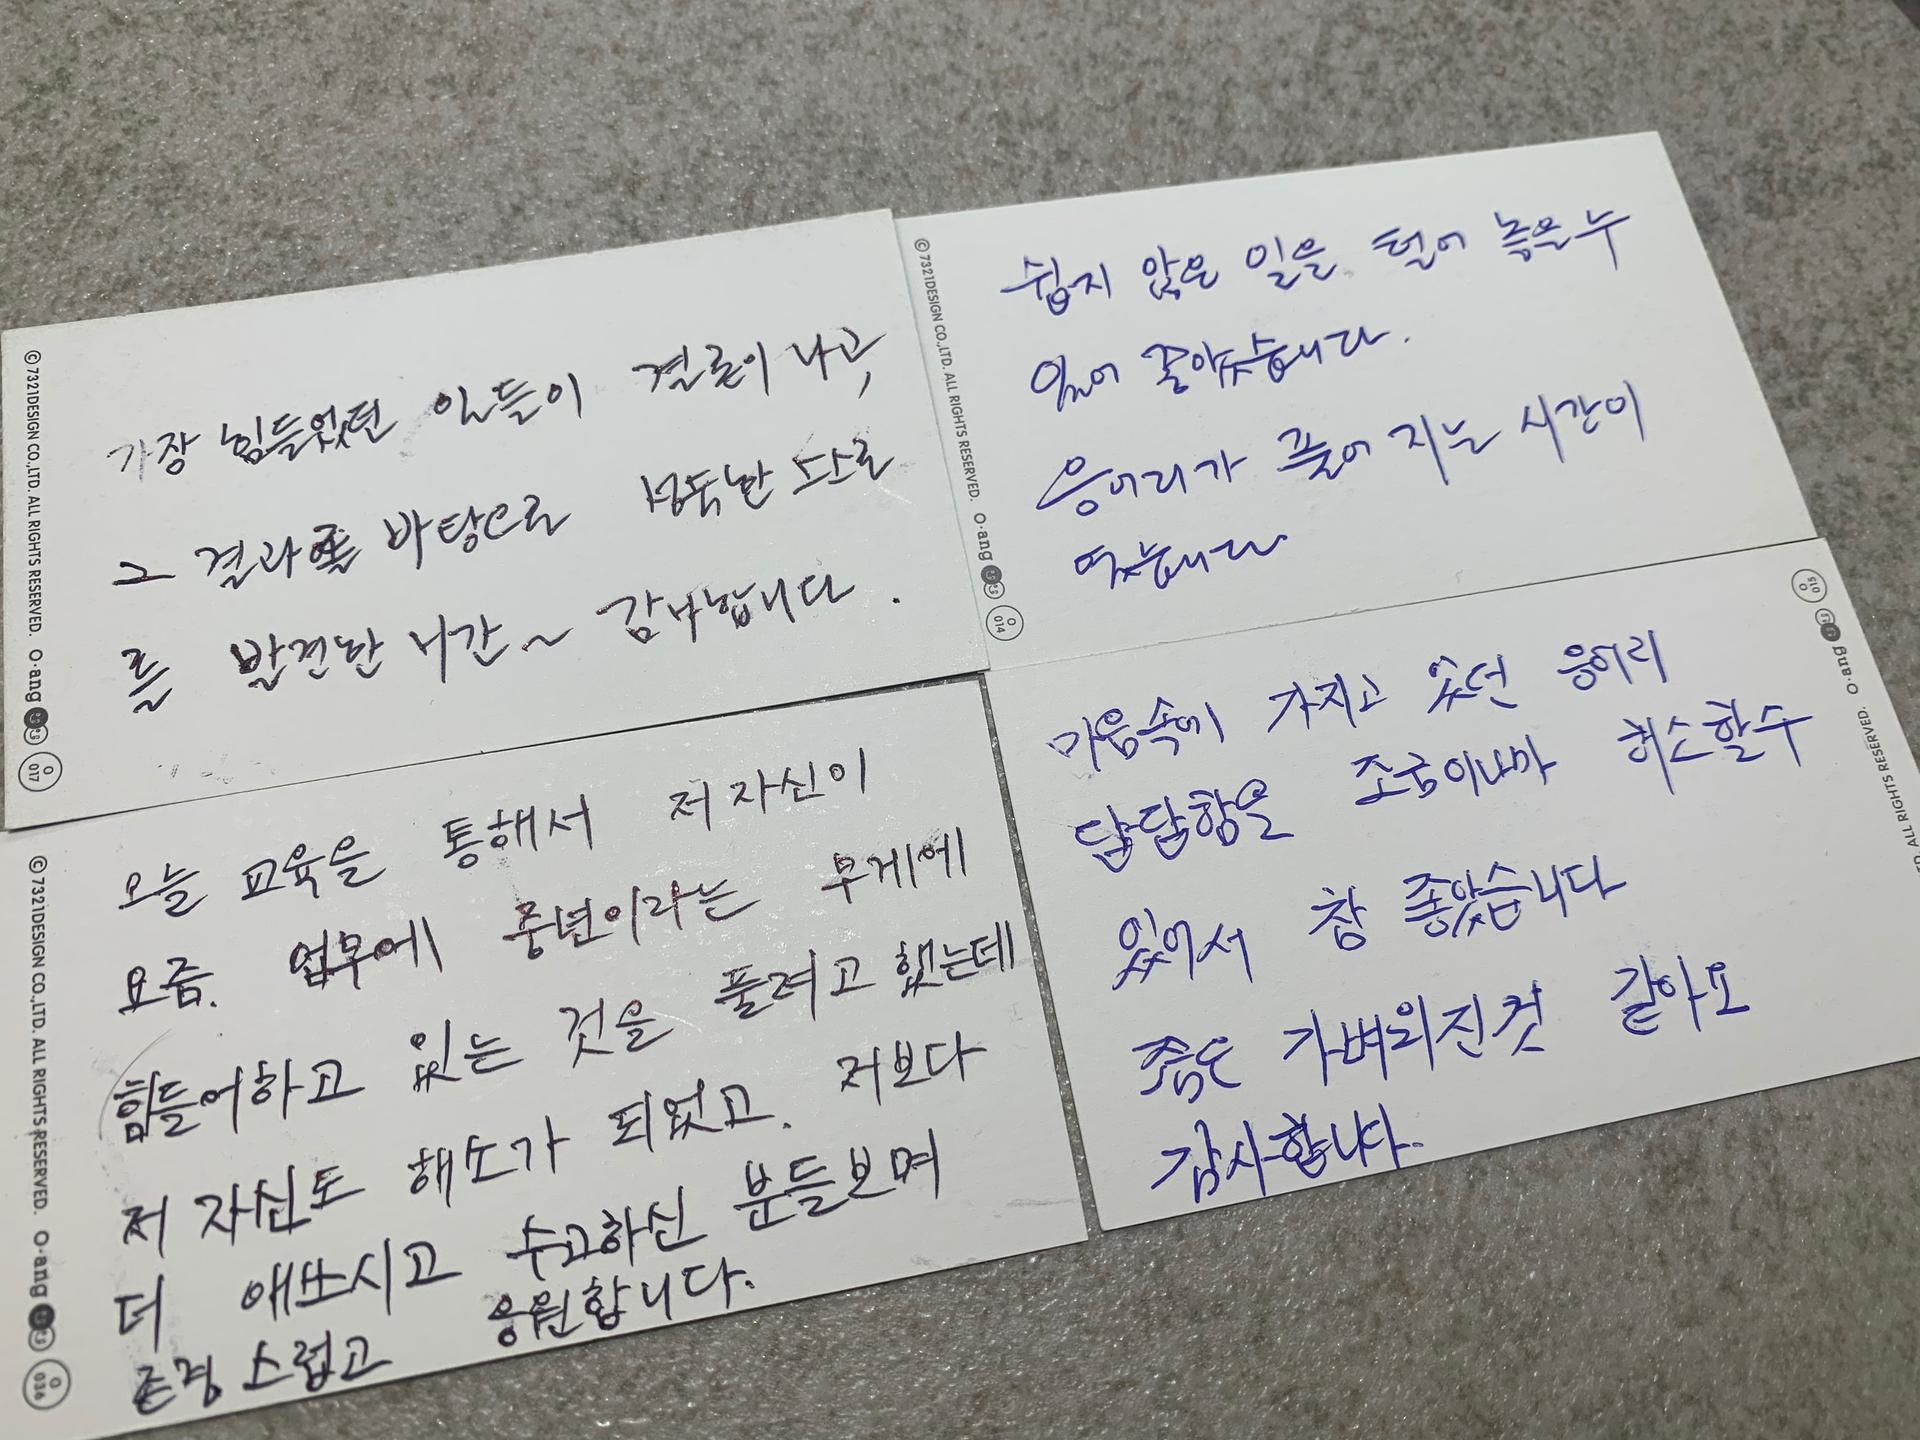 가장 힘들었던 일들이 결론이 나고,
그 결과를 바탕으로 성숙한 스스로
를 발견한 시간~ 감사합니다.
©7321DESIGN CO.,LTD. ALL RIGHTS RESERVED. O·ang
O
017
쉽지 않은 일을 털어 놓을 수
있어 좋았습니다.
응어리가 풀어 지는 시간이
었습니다
©7321DESIGN CO.,LTD. ALL RIGHTS RESERVED. O·ang
O
014
오늘 교육을 통해서 저 자신이
요즘. 업무에 중년이라는 무게에
힘들어하고 있는 것을 풀려고 했는데
저 자신도 해소가 되었고. 저보다
더 애쓰시고 수고하신 분들보며
존경 스럽고 응원합니다.
©7321DESIGN CO.,LTD. ALL RIGHTS RESERVED. O·ang
O
036
마음속에 가지고 있던 응어리
답답함을 조금이나마 해소할수
있어서 참 좋았습니다
좀은 가벼워진것 같아요
감사합니다.
ALL RIGHTS RESERVED. O·ang
O
015